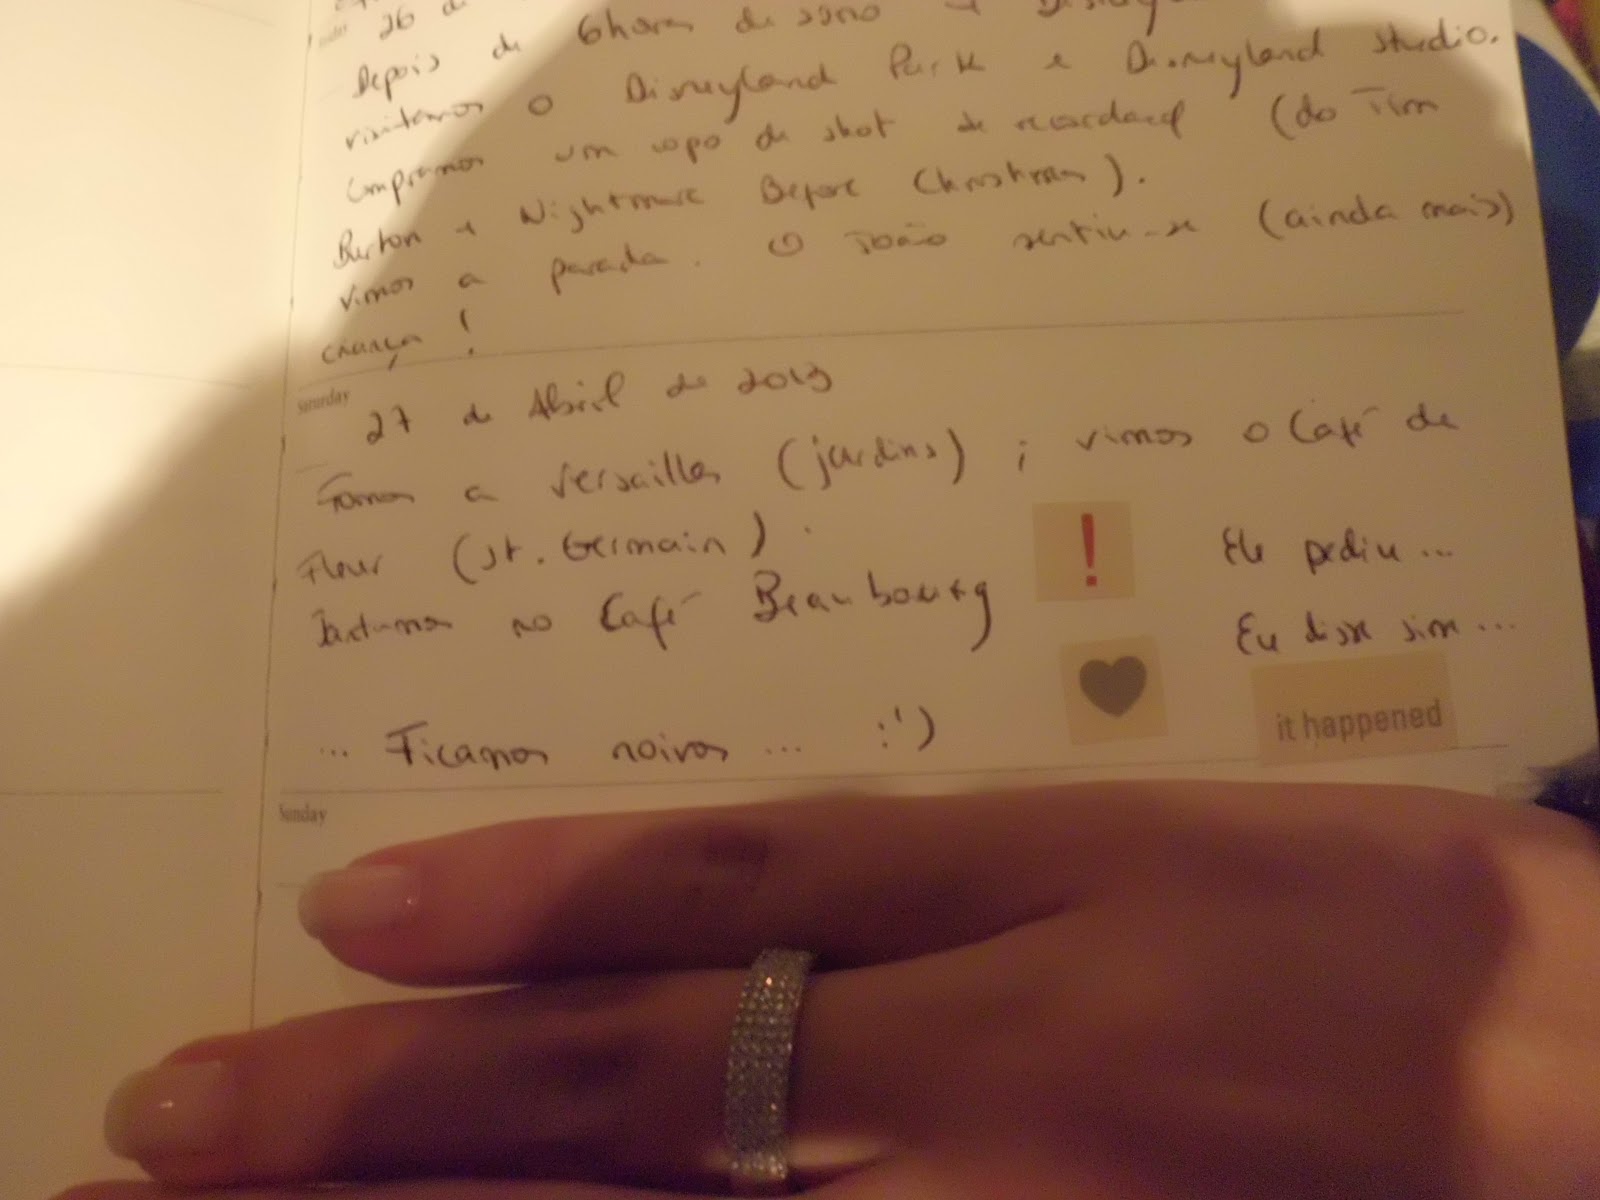 Friday 26 de
Depois de 6 horas de sono + Disney
visitamos o Disneyland Park e Disneyland Studio.
Compramos um copo de shot de (do Tim
Burton + Nightmare Before Christmas).
Vimos a parada. O João sentiu-se (ainda mais)
criança!
Saturday
27 de Abril de 2013
Fomos a Versailles (jardins); vimos o Café de
Fleur (St. Germain).
! Ele pediu...
Jantamos no Café Beaubourg
Eu disse sim...
... Ficamos noivos... :')
it happened
Sunday